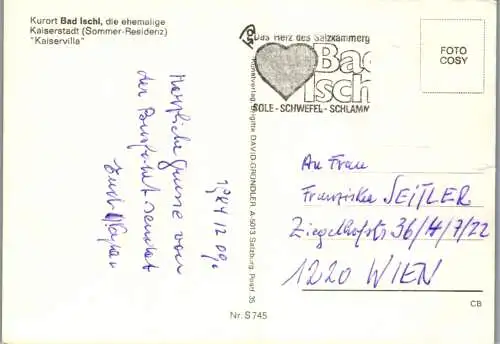 Kurort Bad Ischl, die ehemalige
Kaiserstadt (Sommer-Residenz)
"Kaiservilla"
Das Herz des Salzkammerg
Bad
Isch
SOLE - SCHWEFEL - SCHLAMM
FOTO
COSY
1984 12 09.
Herzliche Grüsse von
der Busfahrt sendet
DAVID-GRÜNDLER A-5013 Salzburg, Postf. 35
An Frau
Franziska SEITLER
Ziegelhofstr 36/H/7/22
1220 WIEN
Nr. S 745
CB